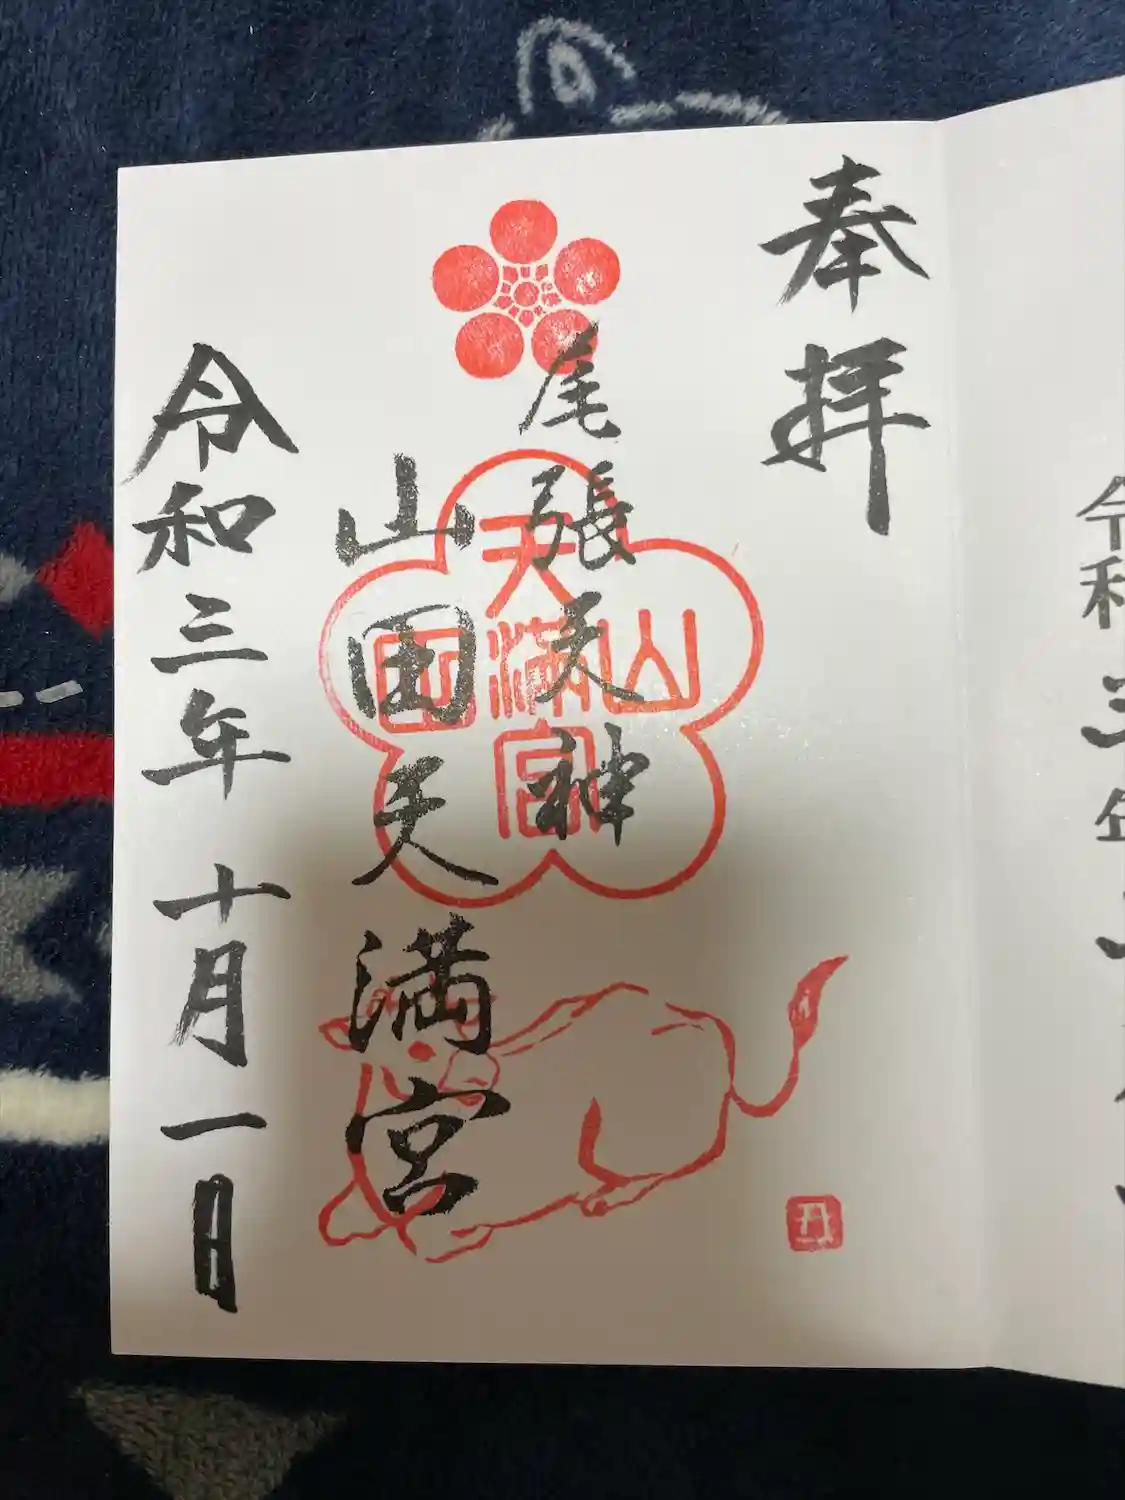 奉拝
尾張天神
山田天満宮
令和三年十月一日
山田天満宮
丑
令和三年